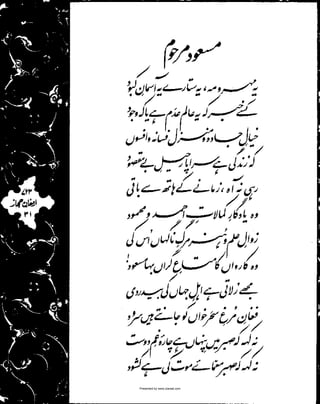 مسعود مرحوم
یہ مہر و مہ، یہ ستارے یہ آسمانِ کبود
کسے خبر کہ یہ عالم عدم ہے یا کہ وجود
خیالِ جادہ و منزل فسانہ و افسوں
کہ زندگی ہے سراپا رحیلِ بے مقصود
رہی نہ آہ، زمانے کے ہاتھ سے باقی
وہ یادگارِ کمالاتِ احمد و محمود
زوالِ علم و ہنر مرگِ ناگہاں اس کی
وہ کارواں کا متاعِ گراں بہا مسعود!
مجھے رلاتی ہے اہلِ جہاں کی بیدردی
فغانِ مرغِ سحر خواں کو جانتے ہیں سرود
نہ کہہ کہ صبر میں پنہاں ہے چارۂ غمِ دوست
نہ کہہ کہ صبر معمائے موت کی ہے کشود
ارمغان حجاز
۳۱
Presented by www.ziaraat.com